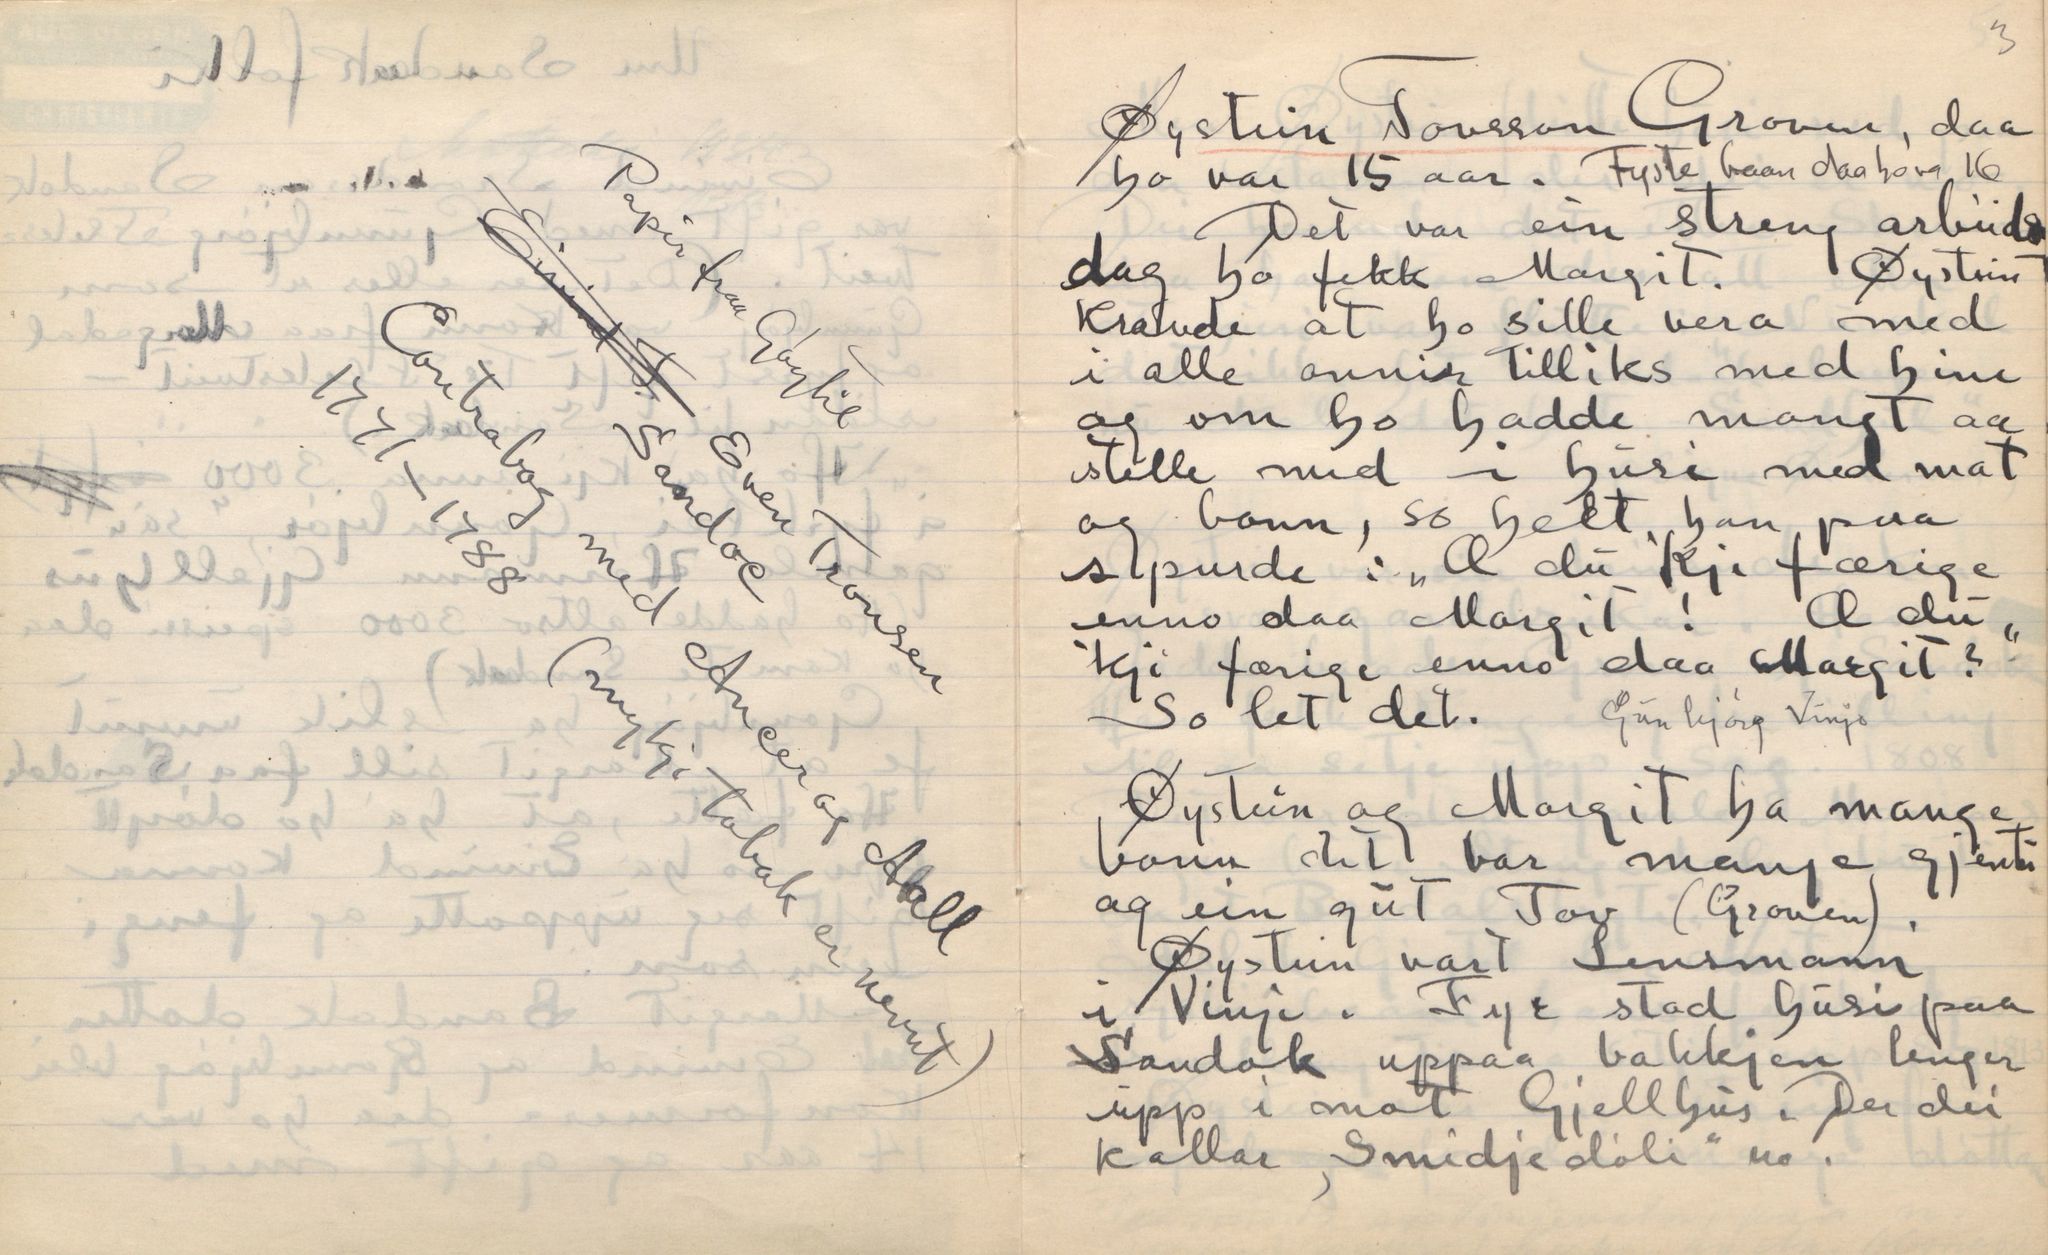 Papir fraa Gaytil
Even Tronsen
Eivind T. Sandoc
Contrabog med Ancer og Aall
1771-1788
(mykji tabak er nemnt)
3
Øystein Tovsson Groven, daa
ho var 15 aar. Fyste baan daa ho va 16
Det var ein streng arbeids
dag ho fekk Margit. Øystein
kravde at ho sille vera med
i alle onnir tilliks med hine
og om ho hadde mangt aa
stelle med i húsi med mat
og bonn, so helt han paa
spurde: „Æ du 'kji færige
enno daa Margit! Æ du
'kji færige enno daa Margit?"
So let det. Gúnbjörg Vinjo
Øystein og Margit ha mange
bonn det var manje gjentú
og ein gút Tov (Groven).
Øystein vart Lensmann
i Vinje. Fyr stod húsi paa
Sandok uppaa bakkjen lenger
upp i mot Gjellhús. Der dei
kallar „Smidjedòli" no.